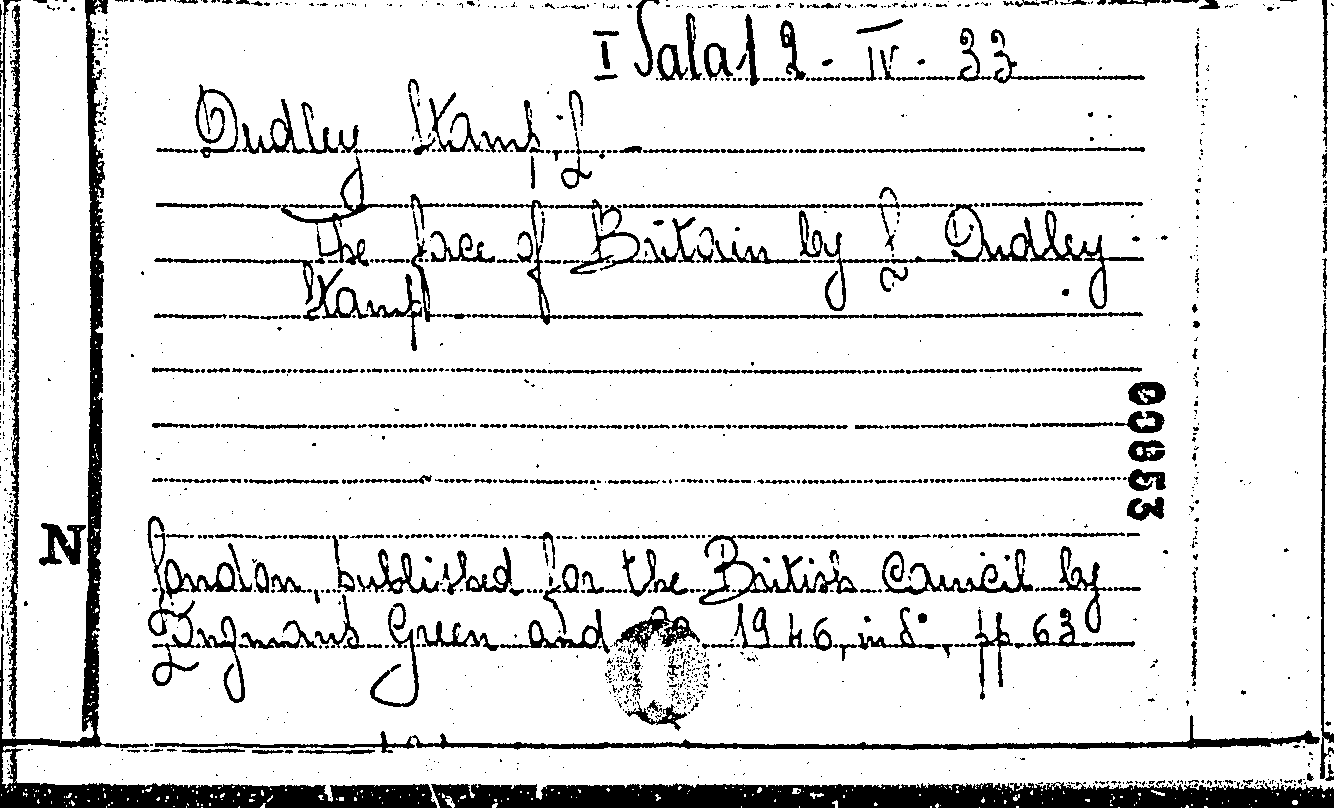 I Sala 12 - IV - 33
Dudley Stamp, L. -
The face of Britain by L. Dudley
Stamp
00853
N
London, published for the British Council by
Longmans Green and Co 1946, in 8°, pp. 63